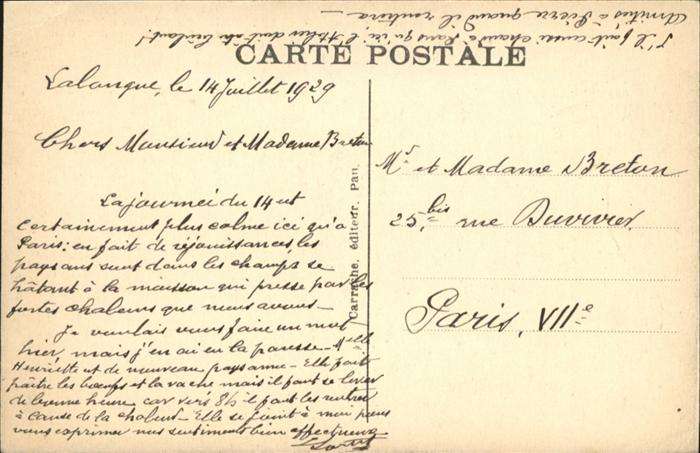 S'il fait aussi chaud à Paris qu'ici l'Atelier doit être brûlant!
Amitiés à Pierre quand il rentrera —
CARTE POSTALE
Lalongue, le 14 Juillet 1929
Chers Monsieur et Madame Breton
La journée du 14 est
certainement plus calme ici qu'à
Paris: en fait de réjouissances, les
paysans sont dans les champs se
hâtant à la moisson qui presse par les
fortes chaleurs que nous avons —
Je voulais vous faire un mot
hier, mais j'en ai eu la paresse — Melle
Henriette est de nouveau paysanne — Elle fait
paître les boeufs et la vache mais il faut se lever
de bonne heure car vers 8h½ il faut les rentrer
à cause de la chaleur. Elle se joint à moi pour
vous exprimer nos sentiments bien affectueux
Carrache, éditeur, Pau.
Mr et Madame Breton
25 bis, rue Duvivier
Paris, VIIe